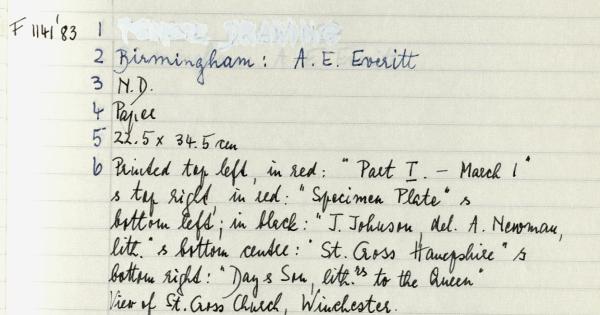 F 1141'83 1
2 Birmingham: A. E. Everitt
3 N.D.
4 Paper
5 22.5 x 34.5 cm
6 Printed top left, in red: "Part I. - March 1"
s top right, in red: "Specimen Plate" s
bottom left; in black: "J. Johnson, del. A. Newman,
lith." s bottom centre: "St. Cross Hampshire" s
bottom right: "Day s Son, lith.rs to the Queen"
View of St. Cross Church, Winchester.